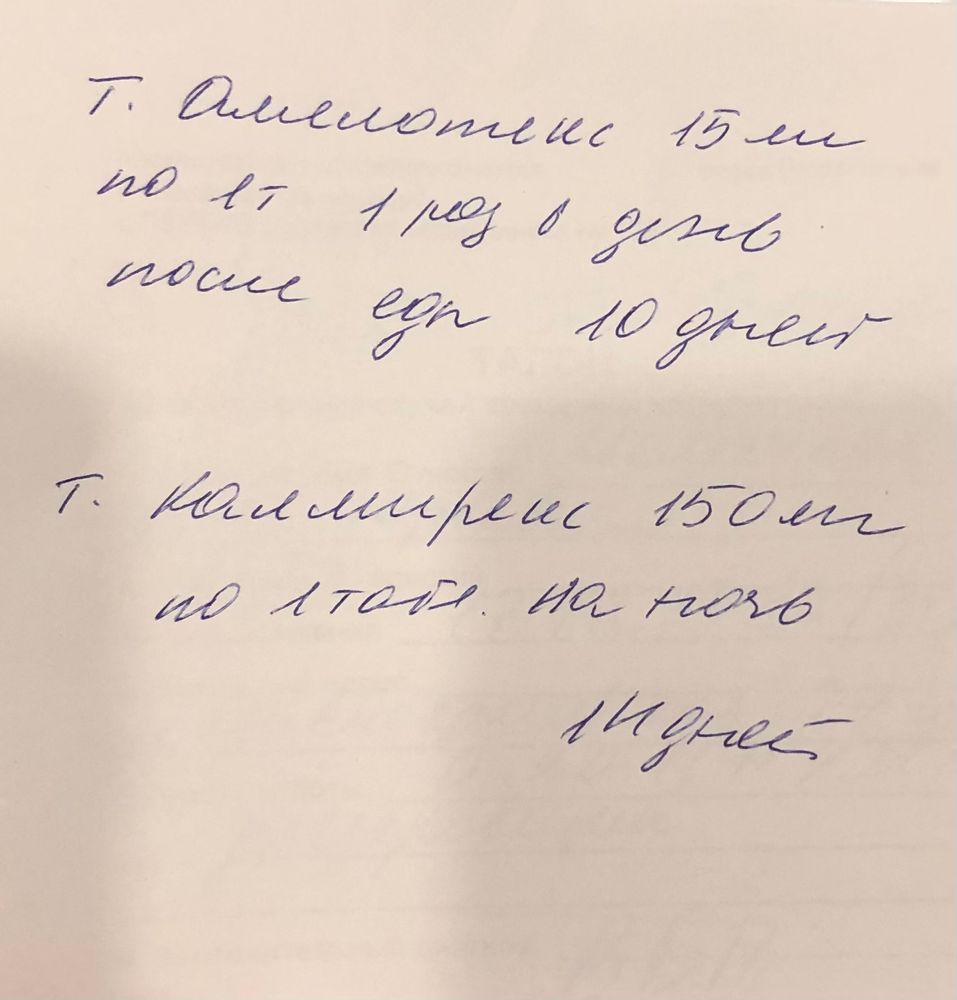 Т. Амелотекс 15 мг
по 1т 1 раз в день
после еды 10 дней
Т. Калмирекс 150 мг
по 1 табл. на ночь
14 дней